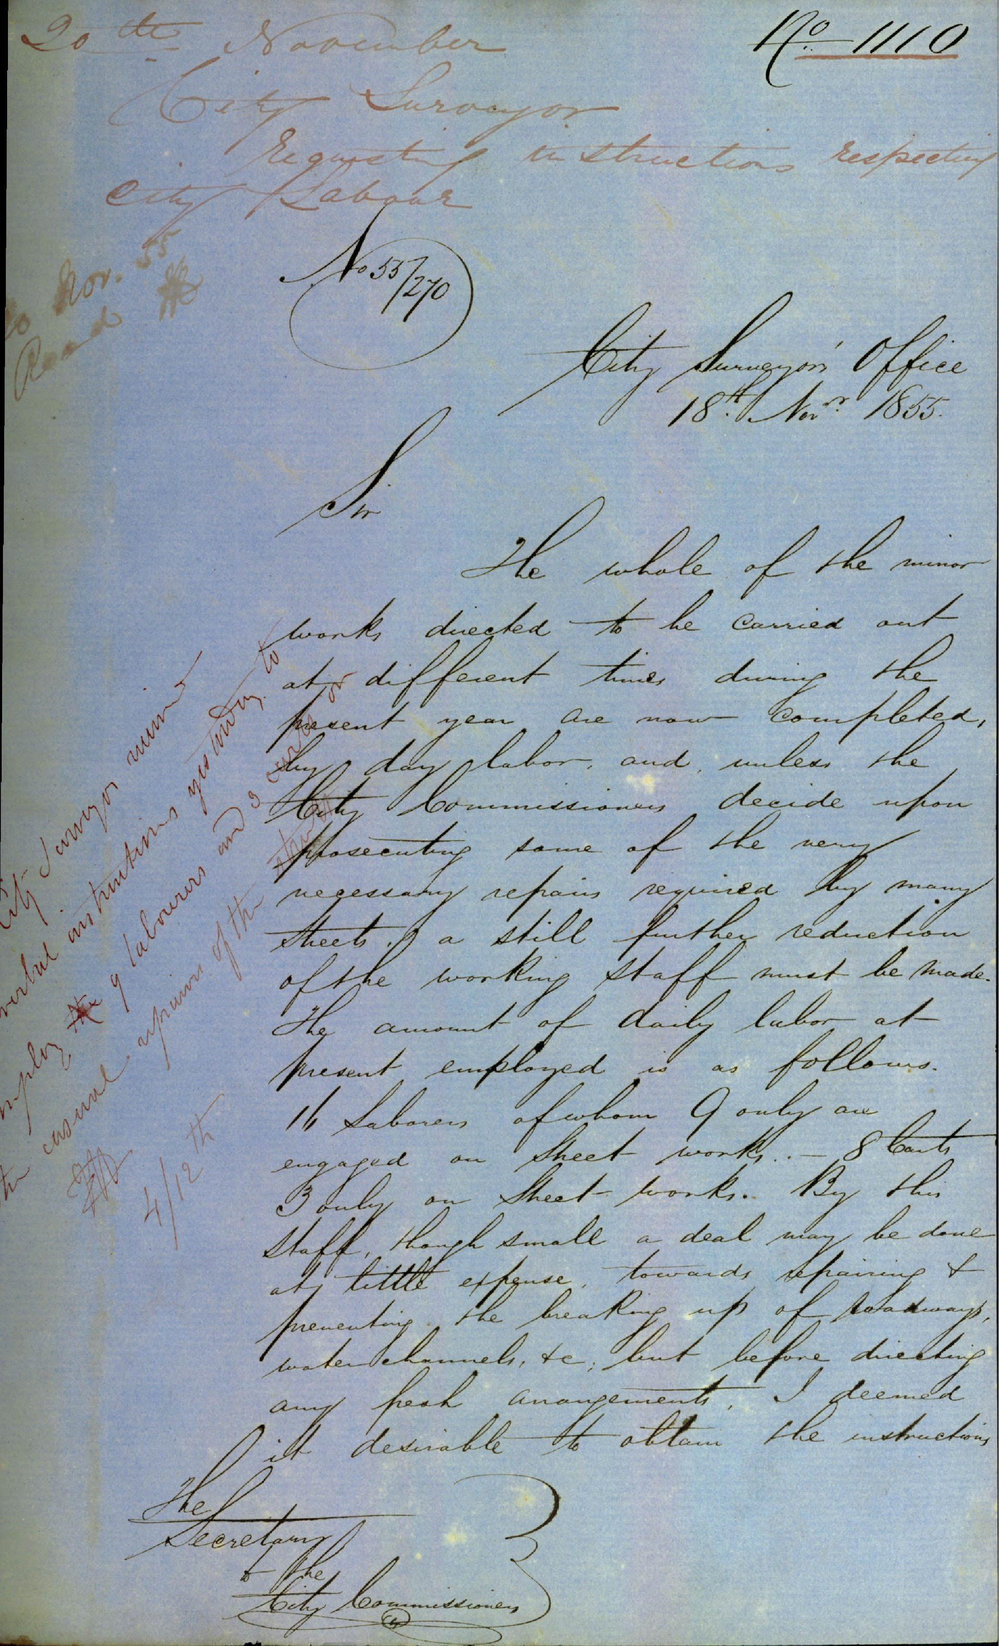 20th November
No 1110
City Surveyor
requesting instructions respecting
City Labour
20 Nov. 55
Read
No 55/270
City Surveyor's Office
18th Novr. 1855.
Sir
The whole of the minor
works directed to be carried out
at different times during the
present year are now completed,
by day labor, and, unless the
City Commissioners decide upon
prosecuting some of the very
necessary repairs required by many
streets, a still further reduction
of the working staff must be made.
The amount of daily labor at
present employed is as follows.
16 Laborers of whom 9 only are
engaged on Street works. - 8 Carts
3 only on Street works. By this
staff, though small a deal may be done
at little expense, towards repairing &
preventing the breaking up of roadways,
water channels, &c; but before directing
any fresh arrangements, I deemed
it desirable to obtain the instructions
The
Secretary
to the
City Commissioners
City Surveyor
verbal instructions yesterday to
employ 9 labourers and 3 carts on
the casual repairs of the
4/12th